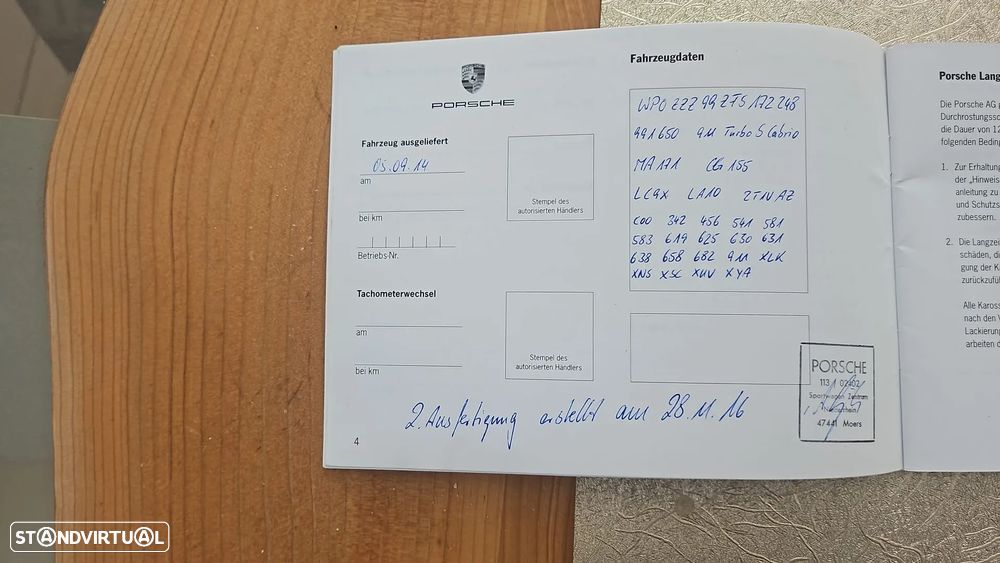 PORSCHE
Fahrzeug ausgeliefert
05.09.14
am
bei km
Betriebs-Nr.
Stempel des
autorisierten Händlers
Tachometerwechsel
am
bei km
Stempel des
autorisierten Händlers
Fahrzeugdaten
WP0 ZZZ 99 ZFS 172 248
991650 911 Turbo S Cabrio
MA171 CG 155
LC9X LA10 2T1V AZ
C00 342 456 541 581
583 619 625 630 631
638 658 682 911 XLK
XNS XSC XUV XYA
PORSCHE
Sportwagen Zentrum
47441 Moers
2. Ausfertigung erstellt am 28.11.16
4
Porsche Lang
Die Porsche AG
Durchrostungssc
die Dauer von 12
folgenden Beding
1. Zur Erhaltung
der „Hinweise
anleitung zu
und Schutzs
zubessern.
2. Die Langzei
schäden, di
gung der K
zurückzufü
Alle Kaross
nach den V
Lackierung
arbeiten d
STANDVIRTUAL